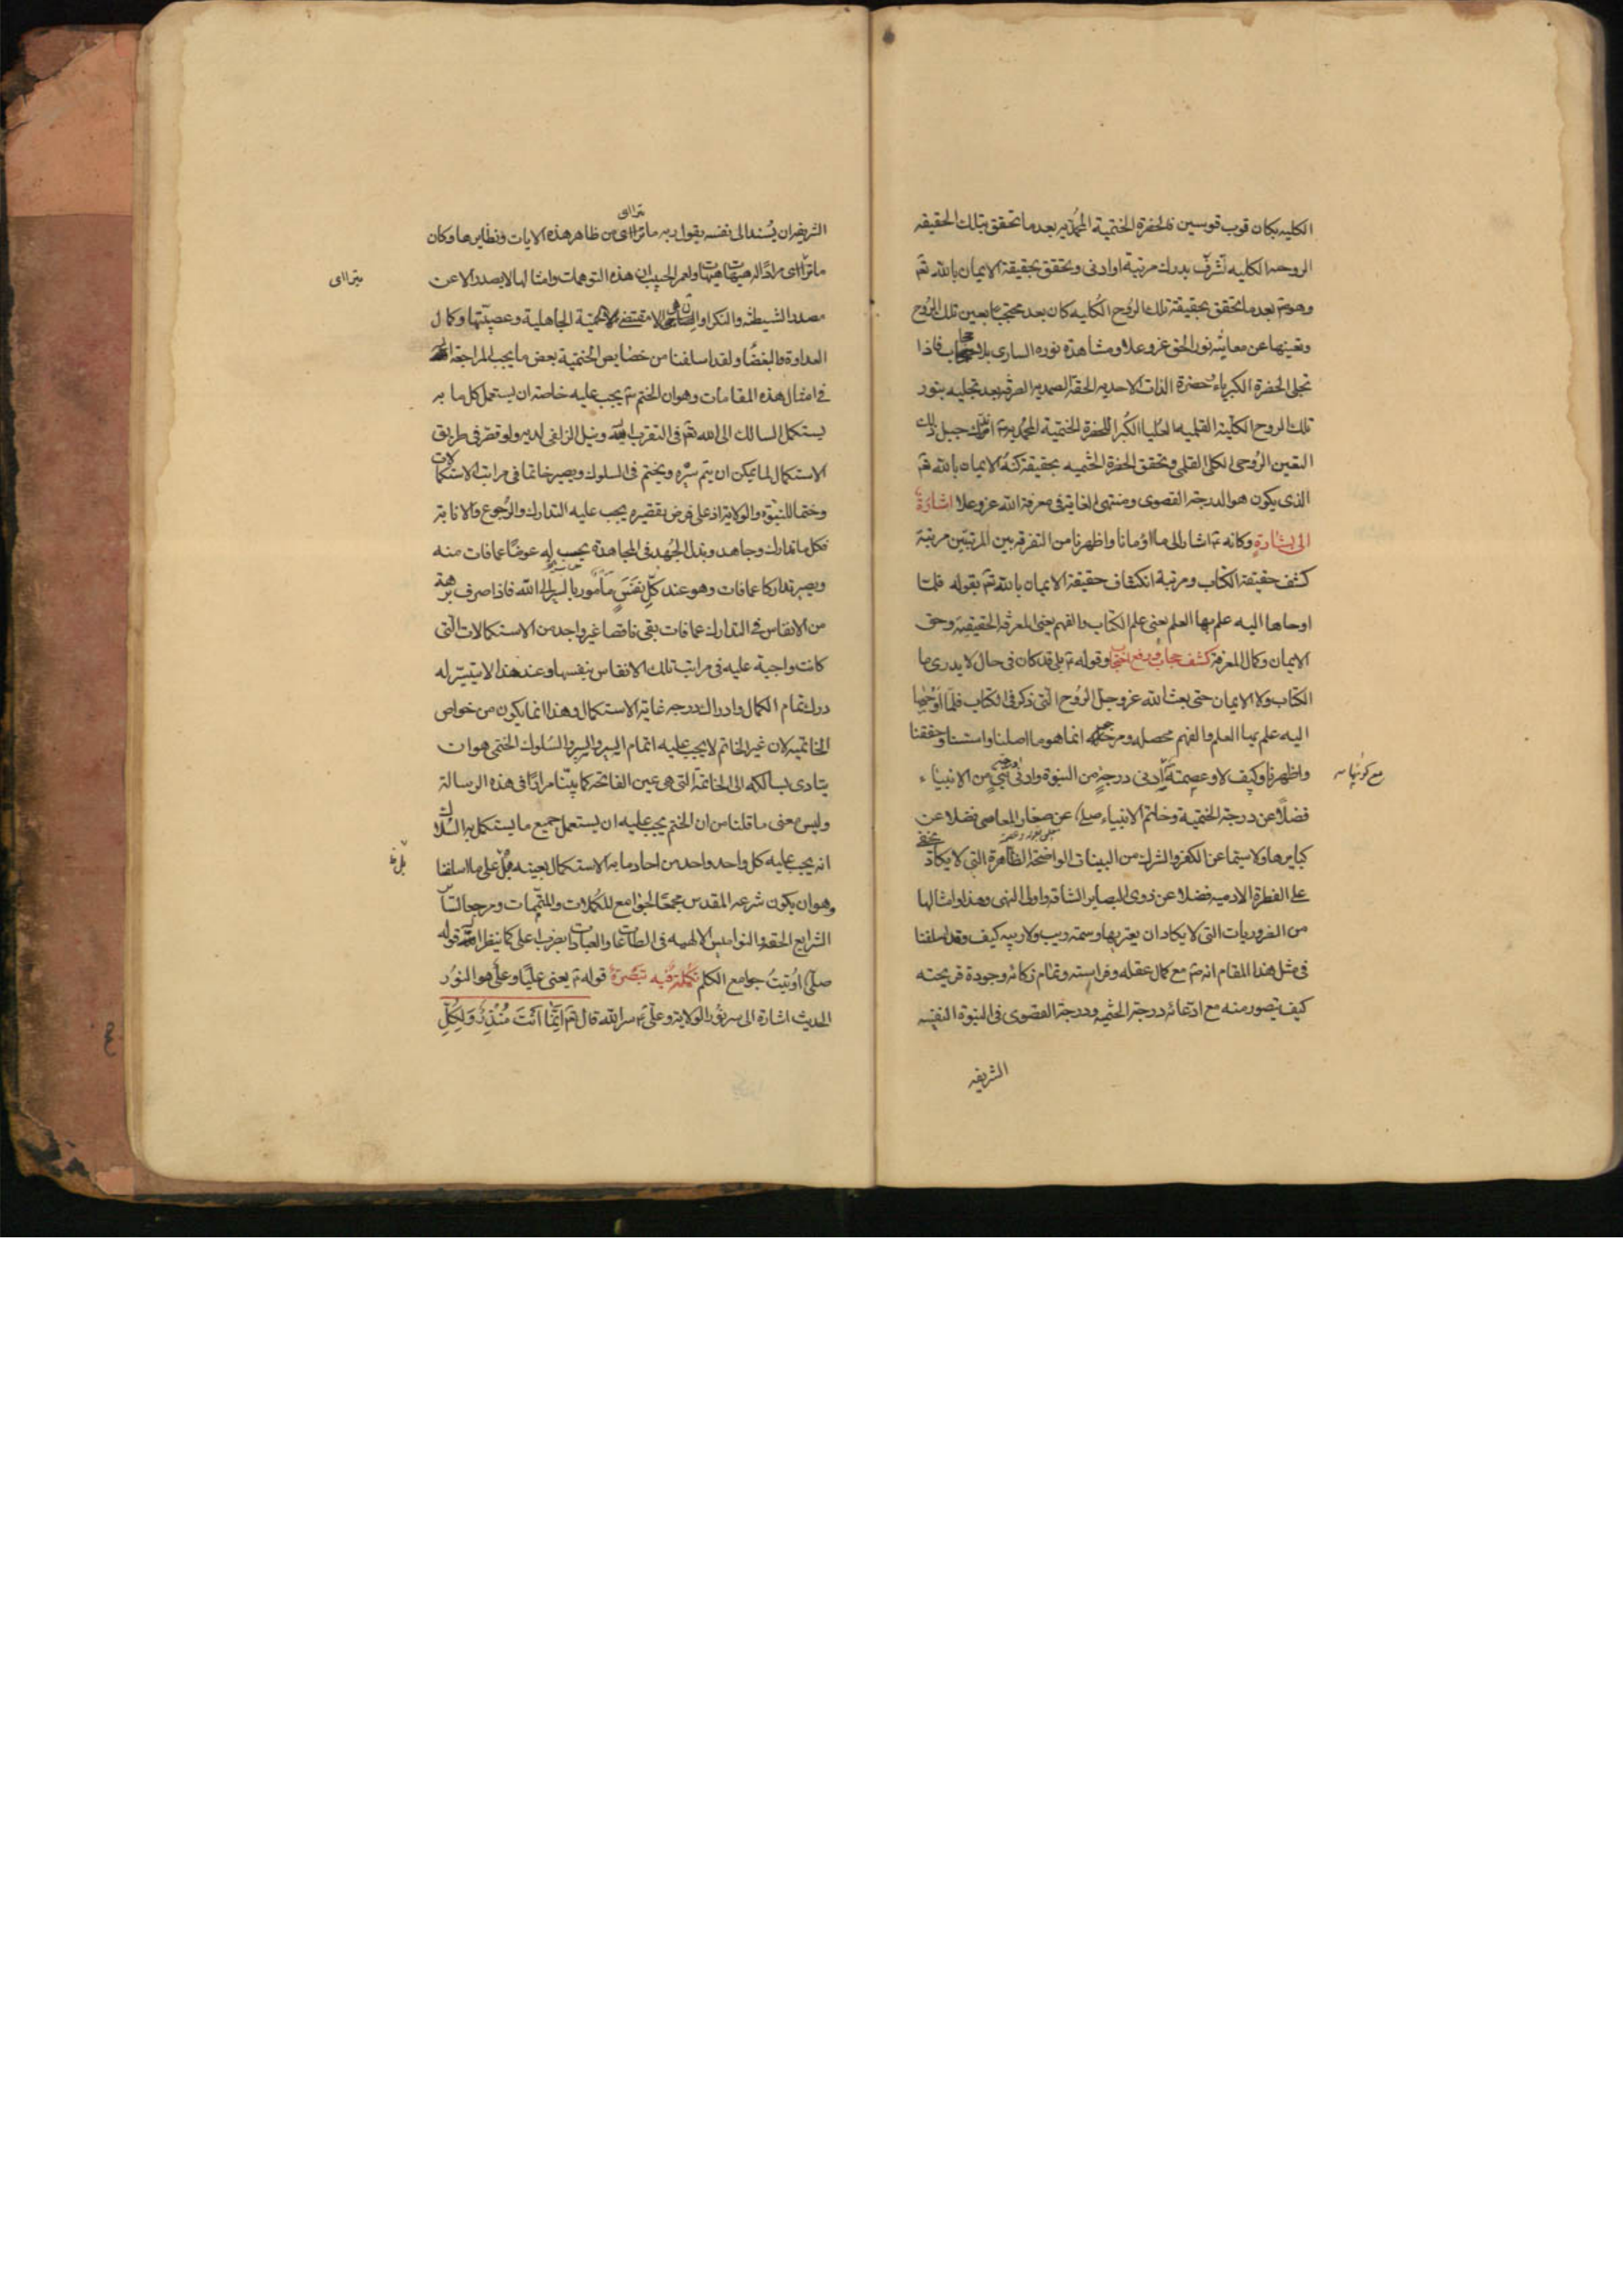 الكليه بكان قوب قوسين فالحضرة الختمية المحمديه بعد ما تحقق بتلك الحقيقه
الروحيه الكليه تشرّف بدرك مرتبة او ادنى وتحقق بحقيقة الايمان بالله تعٓ
وهو بعد ما تحقق بحقيقة تلك الروح الكليه كان بعد محتجبا بعين تلك الروح
وتعينها عن معاينه نور الحق عز وعلا ومشاهدة نوره السارى بلا حجاب فاذا
تجلى الحضرة الكبرياء حضرة الذات الاحديه الحقة الصمديه الصرفه بعد تجليه بنور
تلك الروح الكلية القلميه العليا الكبرا للحضرة الختمية المحمديه جبل ذلك
التعين الروحى الكلى القلمى وتحقق الحضرة الختميه بحقيقة كنه الايمان بالله تعٓ
الذى يكون هو الدرجة القصوى ومنتهى الغاية فى معرفة الله عز وعلا اشارة
الى بشارة وكانه اشار الى ما اومانا واظهرنا من التفرقه بين المرتبتين مرتبة
كشف حقيقة الكتاب ومرتبة انكشاف حقيقة الايمان بالله تعٓ بقوله فلما
اوحاها اليه علم بها العلم يعنى علم الكتاب والفهم يعنى المعرفة الحقيقيه وحق
الايمان وكمال المعرفة كشف حجاب ورفع وقوله بلى قد كان فى حال لا يدرى ما
الكتاب ولا الايمان حتى بعث الله عز وجل الروح التى ذكر فى الكتاب فلما اوحيها
اليه علم بها العلم والفهم محصله انما هو ما اصلنا واسسنا وحققنا
واظهرنا وكيف لا وعصمة ادنى درجة من النبوة وادنى نبي من الانبياء
فضلًا عن درجة الختمية وخاتم الانبياء عن صغار المعاصى فضلا عن
كبايرها ولا سيّما عن الكفر والشرك من البينات الواضحة الظاهرة التى لا يكاد
على الفطرة الادميه فضلا عن ذوى البصاير الثاقبه واولى النهى وهذا وامثالها
من الضروريات التى لا يكاد ان يعتريها وسمة ريب ولا ريبه كيف وقد اسلفنا
فى مثل هذا المقام انه مع كمال عقله وفراسته وتمام ذكائه وجودة قريحته
كيف يتصور منه مع ادعائه درجة الختميه ودرجة القصوى فى النبوة النفيسه
الشريفه
مع كونها
الشريفه ان يُسند الى نفسه بقول ربه ما ترااى من ظاهر هذه الايات ونظايرها وكان
يتراای
ما ترااى مرادًا له هيهات هيهات ولعمر الحبيب ان هذه التوهمات وامثالها لا يصدر الا عن
يتراای
مصدر الشيطنه والنكرا الحمية الجاهلية وعصبيتها وكمال
العداوة والبغضا ولقد اسلفنا من خصايص الختمية بعض ما يجب المراجعة
فى امثال هذه المقامات وهو ان الختم يجب عليه خاصة ان يستعمل كل ما به
يستكمل السالك الى الله تعٓ فى التقرب ونيل الزلفى لديه ولو قصّر فى طريق
الاستكمال لما يمكن ان يتم سيره ويختم فى السلوك ويصير خاتما فى مراتب الاستكمالات
وختما للنبوة والولاية اذ على فرض تقصيره يجب عليه التدارك والرجوع والانابة
فكل ما تدارك وجاهد وبذل الجُهد فى المجاهدة يحسب له عوضًا عما فات منه
ويصير تداركا عما فات وهو عند كلّ نفسٍ مأمور بالسير الى الله فاذا صرف برهة
من الانفاس فى التدارك عما فات بقى ناقصا غير واجد من الاستكمالات التى
كانت واجبة عليه فى مراتب تلك الانفاس بنفسها وعند هذا لا يتيسّر له
درك تمام الكمال وادراك درجه غاية الاستكمال وهذا انما يكون من خواص
الخاتميه لان غير الخاتم لا يجب عليه اتمام السير والسير والسلوك الختمى هو ان
يتادى بسالكه الى الخاتمة التى هى عين الفاتحة كما بينّا مرارًا فى هذه الرسالة
وليس معنى ما قلنا من ان الختم يجب عليه ان يستعمل جميع ما يستكمل به السُلاك
انه يجب عليه كل واحد واحد من احاد ما به الاستكمال بعينه بل على ما اسلفنا
وهو ان يكون شرعه المقدس مجمعًا لجوامع المكملات والمتمّمات ومرجعا لسائر
الشرايع الحقة والنواميس الالهيه فى الطاعات والعبادات بضرب اعلى كما ينظر اليه قوله
صلّى اُوتيتُ جوامع الكلم تكملة فيه تبصرة قوله يعنى عليًا وعلى هو النور
الحديث اشارة الى سر نور الولايه وعلى سر الله قال تعٓ اِنَّما اَنْتَ مُنْذِرٌ وَلِكُلِّ